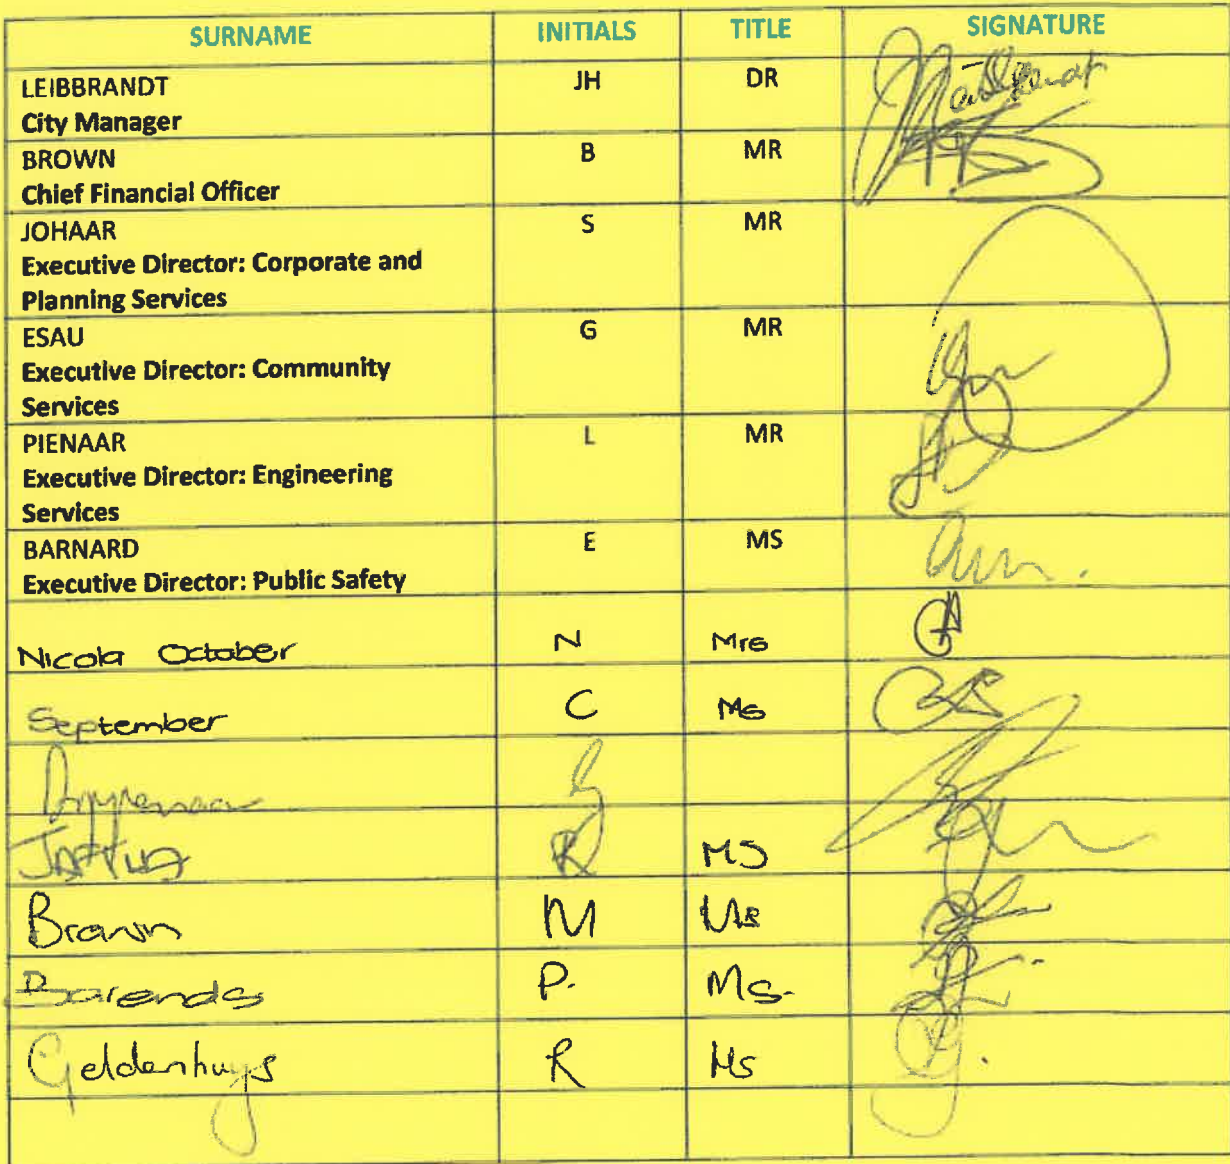 SURNAME INITIALS TITLE SIGNATURE
LEIBBRANDT JH DR
City Manager
BROWN B MR
Chief Financial Officer
JOHAAR S MR
Executive Director: Corporate and
Planning Services
ESAU G MR
Executive Director: Community
Services
PIENAAR L MR
Executive Director: Engineering
Services
BARNARD E MS
Executive Director: Public Safety
Nicola October N Mrs
September C Ms
R MS
Brown M
Barends P. Ms.
Geldenhuys R Ms